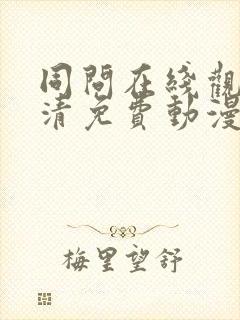 同問在綫觀
清免費動漫
梅里望舒